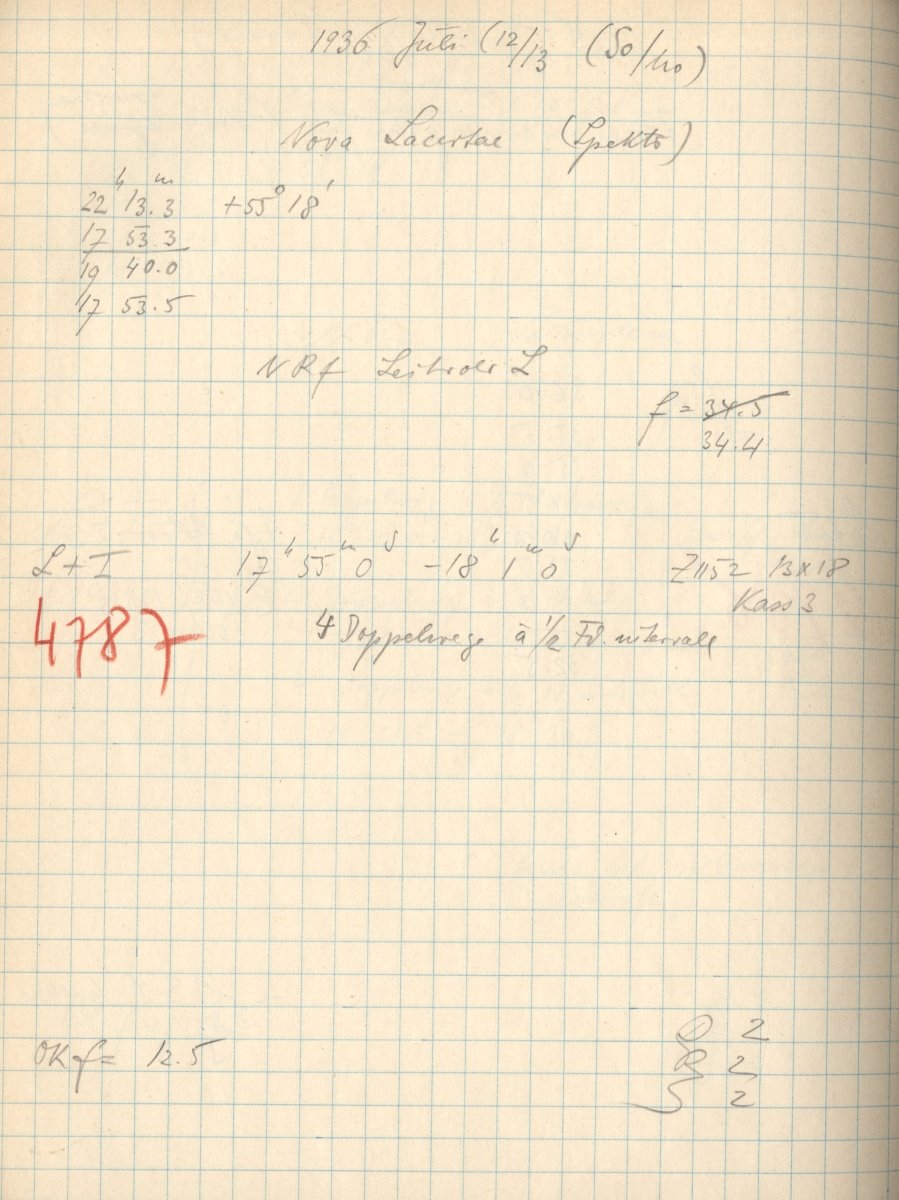 1936 Juli (12/13 (So/Mo)
Nova Lacertae (Spektr)
22ʰ 13.ᵐ3 +55° 18'
17 53.3
19 40.0
17 53.5
N R f Leitrohr L
f = 34.5
34.4
L + I 17ʰ 55ᵐ 0ˢ - 18ʰ 1ᵐ 0ˢ Z1152 13x18
Kass 3
4787 4 Doppelwege à 1/2 Fd. intervall
OK f = 12.5
D 2
R 2
S 2